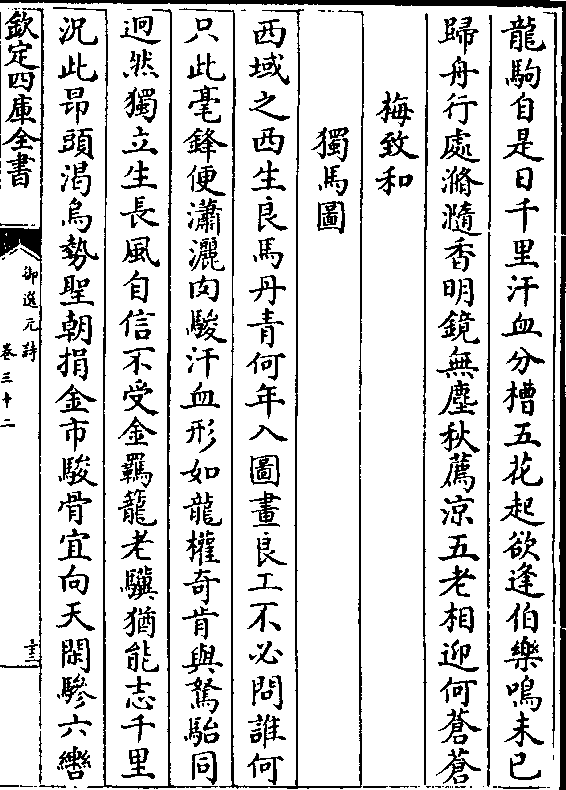 龍駒自是日千里汗血分槽五花起欲逢伯樂鳴未已
歸舟行處滫瀡香明鏡無塵秋薦凉五老相迎何蒼蒼
梅致和
獨馬圖
西域之西生良馬丹青何年入圖畫良工不必問誰何
只此毫鋒便瀟灑肉駿汗血形如龍權奇肯與駑駘同
迥然獨立生長風自信不受金羈籠老驥猶能志千里
況此昂頭渴烏勢聖朝捐金市駿骨宜向天閑驂六轡
欽定四庫全書
御選元詩
卷三十二
十三